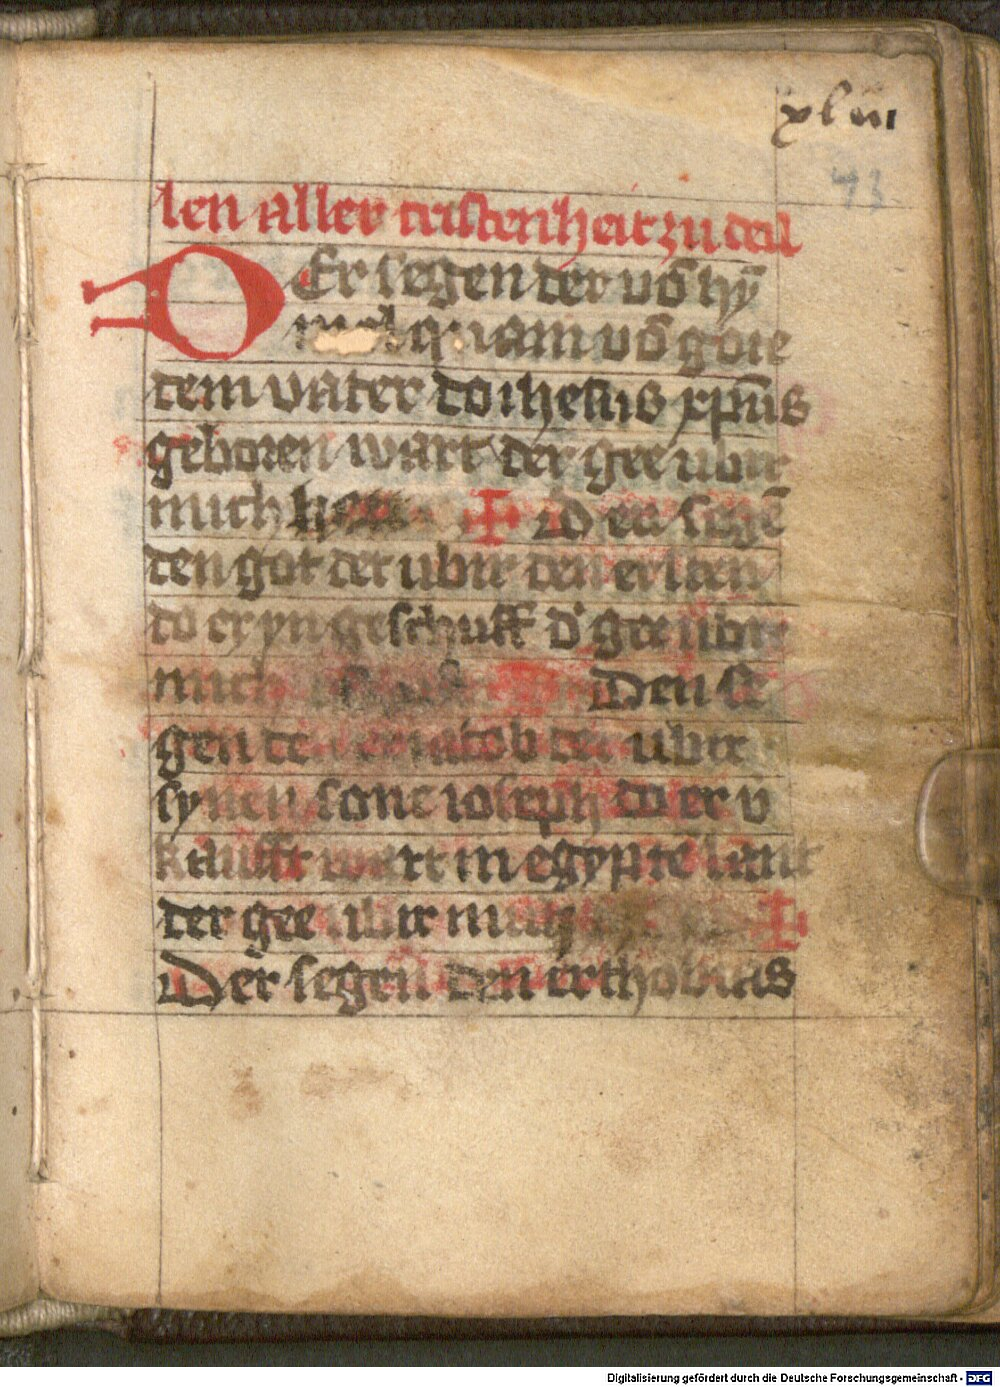 xliii
43
len aller cristenheit zu teil
DEr segen der vō hy
quam vō gote
dem vater do ihesus xp̄us
geboren wart der gee ubir
mich ✠ Den segē
den got det ubir den ersten
do er yn geschuff d' gee ubir
mich Den se
gen iacob det ubir
synen sone ioseph do er v
kaufft wart in egypte lant
der gee ubir mich ✠
Der segen den er thobias
Digitalisierung gefördert durch die Deutsche Forschungsgemeinschaft - DFG